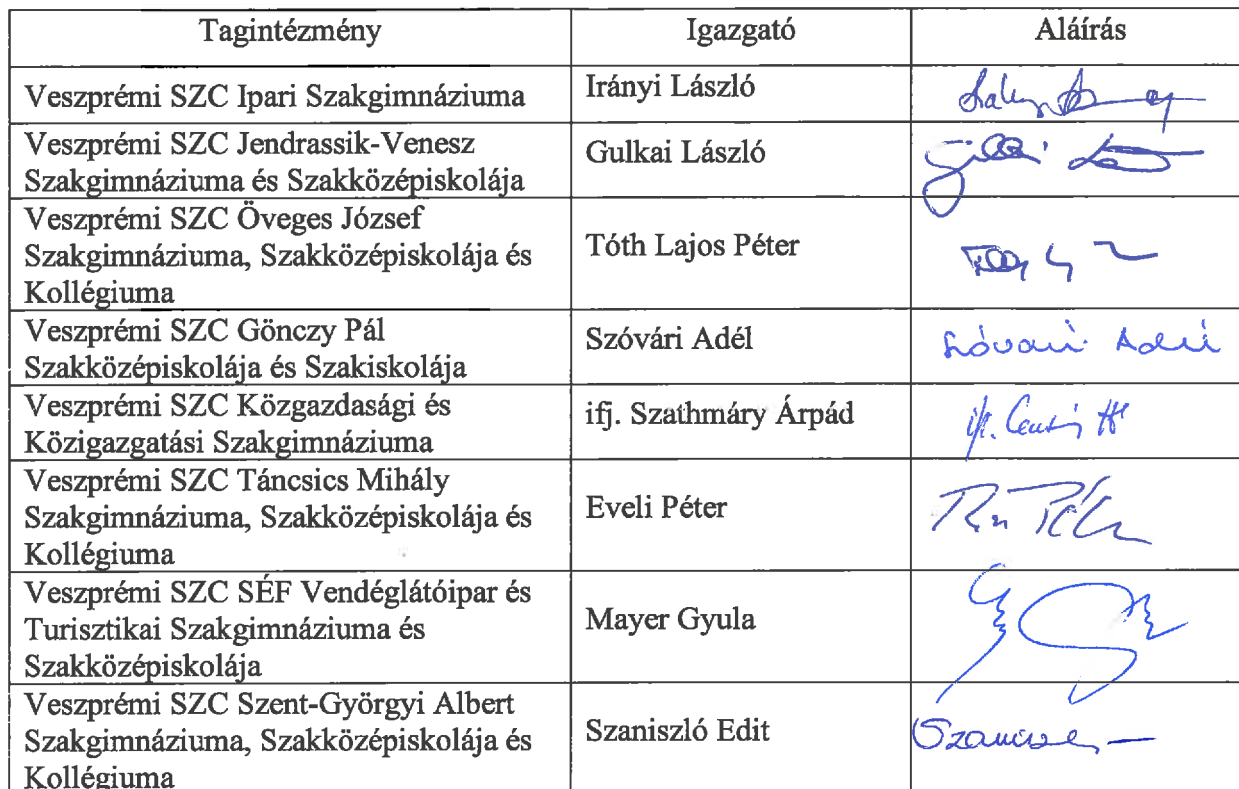 Tagintézmény Igazgató Aláírás
Veszprémi SZC Ipari Szakgimnáziuma Irányi László
Veszprémi SZC Jendrassik-Venesz
Szakgimnáziuma és Szakközépiskolája Gulkai László
Veszprémi SZC Öveges József
Szakgimnáziuma, Szakközépiskolája és
Kollégiuma Tóth Lajos Péter
Veszprémi SZC Gönczy Pál
Szakközépiskolája és Szakiskolája Szóvári Adél Szóvári Adél
Veszprémi SZC Közgazdasági és
Közigazgatási Szakgimnáziuma ifj. Szathmáry Árpád
Veszprémi SZC Táncsics Mihály
Szakgimnáziuma, Szakközépiskolája és
Kollégiuma Eveli Péter
Veszprémi SZC SÉF Vendéglátóipar és
Turisztikai Szakgimnáziuma és
Szakközépiskolája Mayer Gyula
Veszprémi SZC Szent-Györgyi Albert
Szakgimnáziuma, Szakközépiskolája és
Kollégiuma Szaniszló Edit